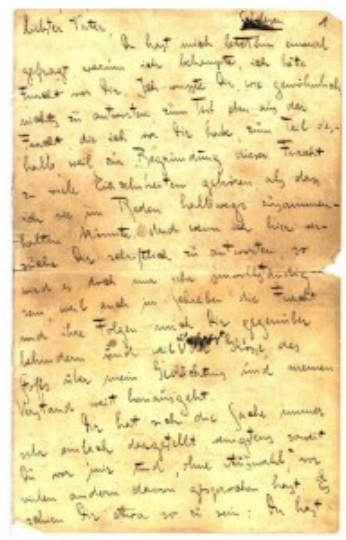 Schelesen 1
Liebster Vater,
Du hast mich letzthin einmal
gefragt, warum ich behaupte, ich hätte
Furcht vor Dir. Ich wusste Dir, wie gewöhnlich,
nichts zu antworten, zum Teil eben aus der
Furcht die ich vor Dir habe, zum Teil des-
halb weil zur Begründung dieser Furcht
zu viele Einzelheiten gehören, als dass
ich sie im Reden halbwegs zusammen-
halten könnte. Und wenn ich hier ver-
suche Dir schriftlich zu antworten, so
wird es doch nur sehr unvollständig
sein, weil auch im Schreiben die Furcht
und ihre Folgen mich Dir gegenüber
behindern und weil Grösse des
Stoffs über mein Gedächtnis und meinen
Verstand weit hinausgeht.
Dir hat sich die Sache immer
sehr einfach dargestellt, wenigstens soweit
Du vor mir und, ohne Auswahl, vor
vielen andern davon gesprochen hast. Es
schien Dir etwa so zu sein: Du hast